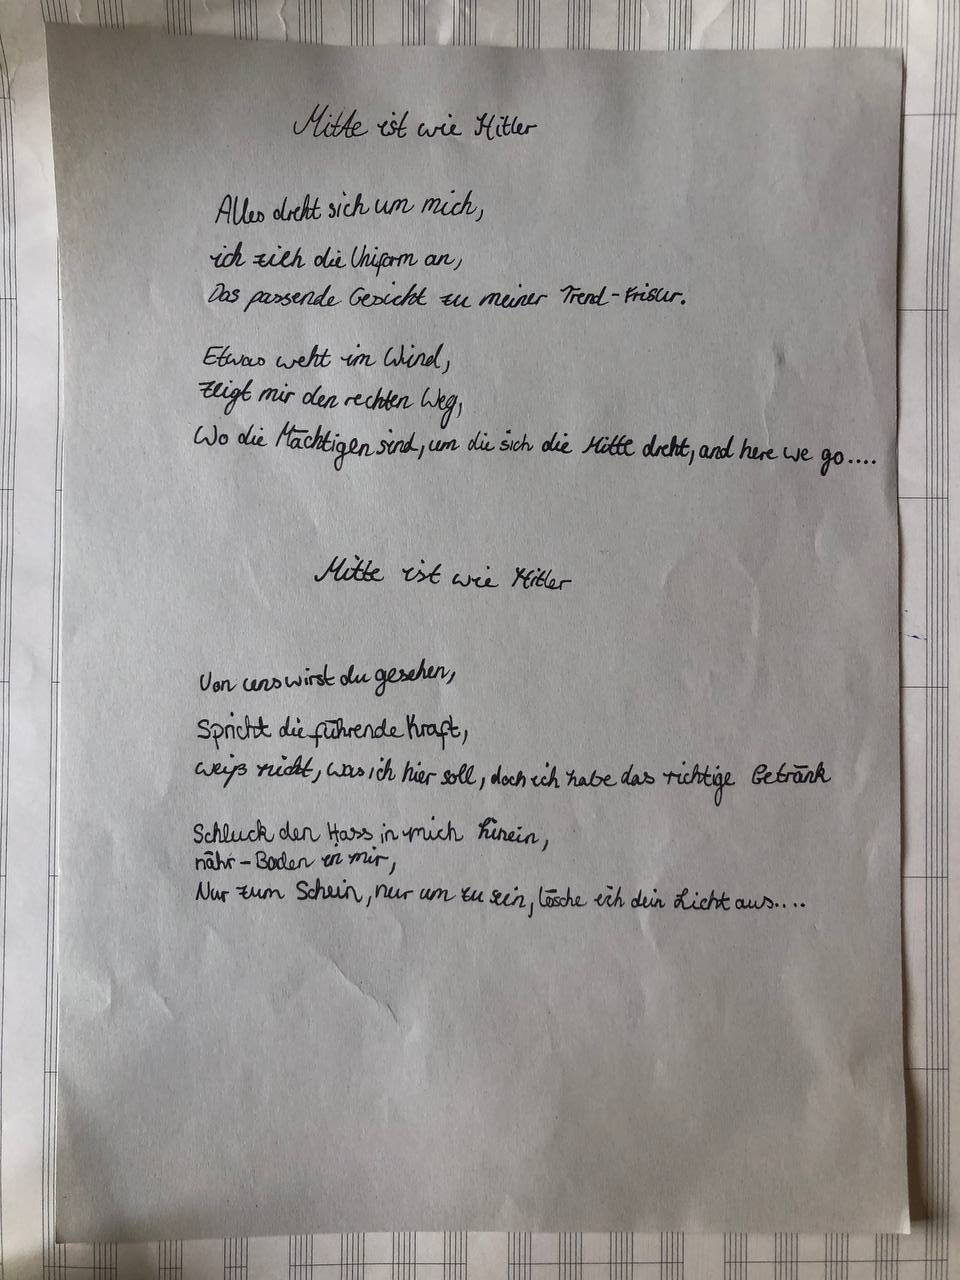 Mitte ist wie Hitler
Alles dreht sich um mich,
ich zieh die Uniform an,
Das passende Gesicht zu meiner Trend-Frisur.
Etwas weht im Wind,
zeigt mir den rechten Weg,
Wo die Mächtigen sind, um die sich die Mitte dreht, and here we go....
Mitte ist wie Hitler
Von uns wirst du gesehen,
Spricht die führende Kraft,
weiß nicht, was ich hier soll, doch ich habe das richtige Getränk
Schluck den Hass in mich hinein,
nähr-Boden in mir,
Nur zum Schein, nur um zu sein, lösche ich dein Licht aus....